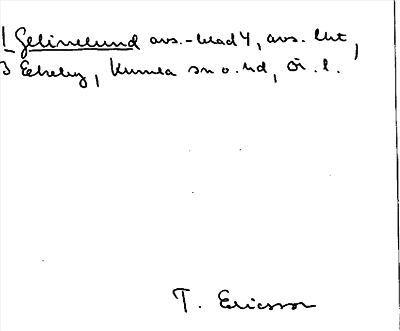 1 Gelinelund avs.-blad 4, avs. lht,
3 Ekeby, Kumla sn o. hd, Ör. l.
T. Ericsson